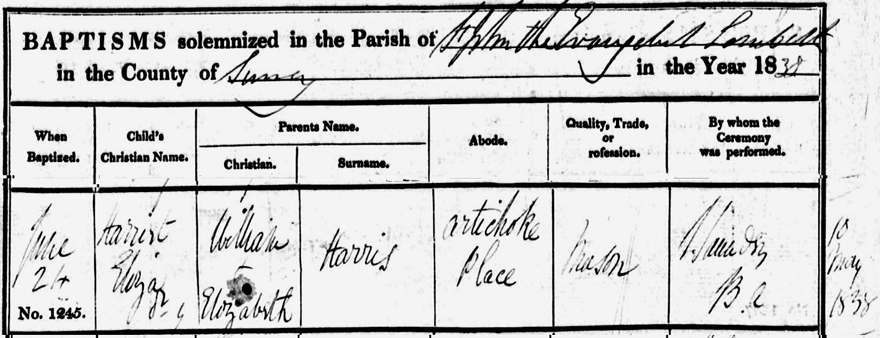 BAPTISMS solemnized in the Parish of St John the Evangelist Lambeth
in the County of Surrey in the Year 1838
When Baptized.
Child's Christian Name.
Parents Name.
Christian.
Surname.
Abode.
Quality, Trade, or rofession.
By whom the Ceremony was performed.
June 24
No. 1245.
Harriet Eliza
William & Elizabeth
Harris
Artichoke Place
Mason
B.A
10 May 1838